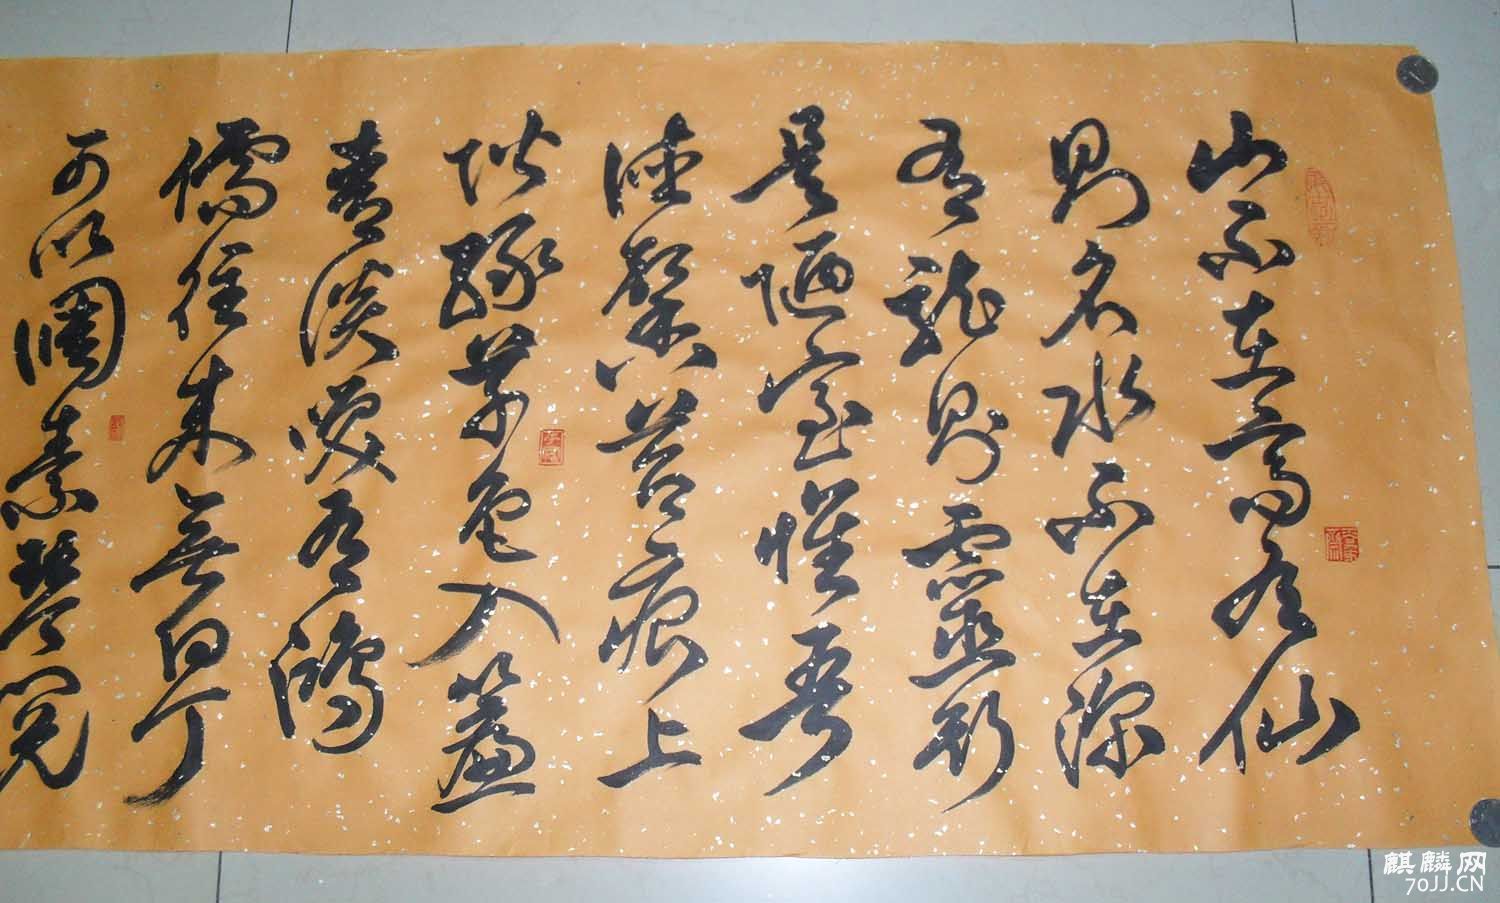 山不在高有仙
則名水不在深
有龍則靈斯
是陋室惟吾
德馨苔痕上
階綠草色入簾
青談笑有鴻
儒往來無白丁
可以調素琴閱
麒麟网
70JJ.CN